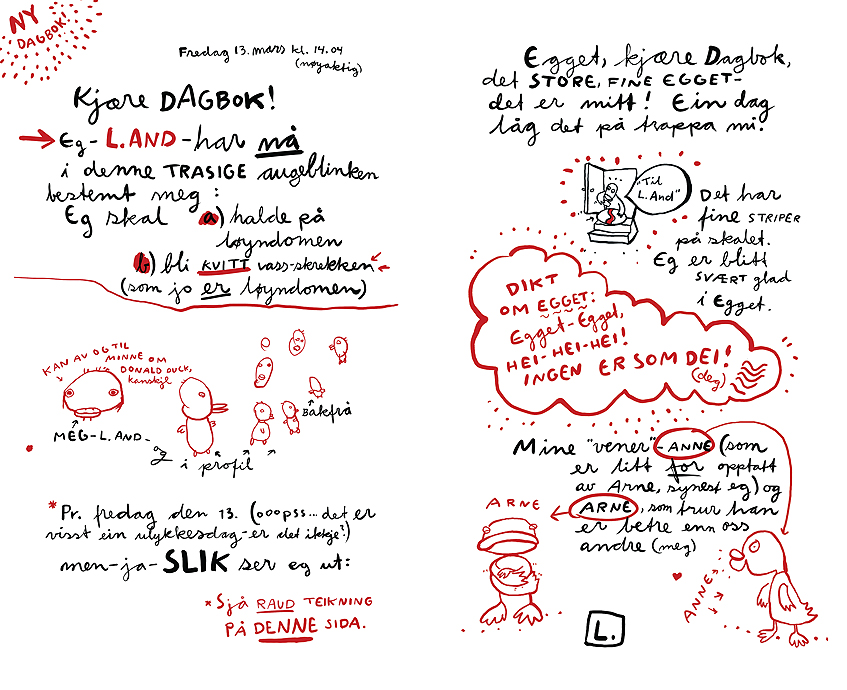 NY
DAGBOK!
Fredag 13. mars kl. 14.04
(nøyaktig)
Kjære DAGBOK!
Eg - L.AND - har nå
i denne TRASIGE augeblinken
bestemt meg:
Eg skal a) halde på
løyndomen
b) bli KVITT vass-skrekken
(som jo er løyndomen)
KAN AV OG TIL
MINNE OM
DONALD DUCK,
kanskje
MEG - L. AND -
og
i profil
Bakfrå
*Pr. fredag den 13. (ooopss... det er
visst ein ulykkesdag - er det ikkje?)
men - ja - SLIK ser eg ut:
*Sjå RAUD TEIKNING
PÅ DENNE SIDA.
Egget, kjære Dagbok,
det STORE, FINE EGGET -
det er mitt! Ein dag
låg det på trappa mi.
"Til
L. And"
Det har
fine STRIPER
på skalet.
Eg er blitt
SVÆRT glad
i Egget.
DIKT
OM EGGET:
Egget-Egget,
HEI-HEI-HEI!
INGEN ER SOM DEI!
(deg)
Mine "vener" - ANNE (som
er litt for opptatt
av Arne, synest eg) og
ARNE, som trur han
er betre enn oss
andre (meg)
ARNE
ANNE
L.